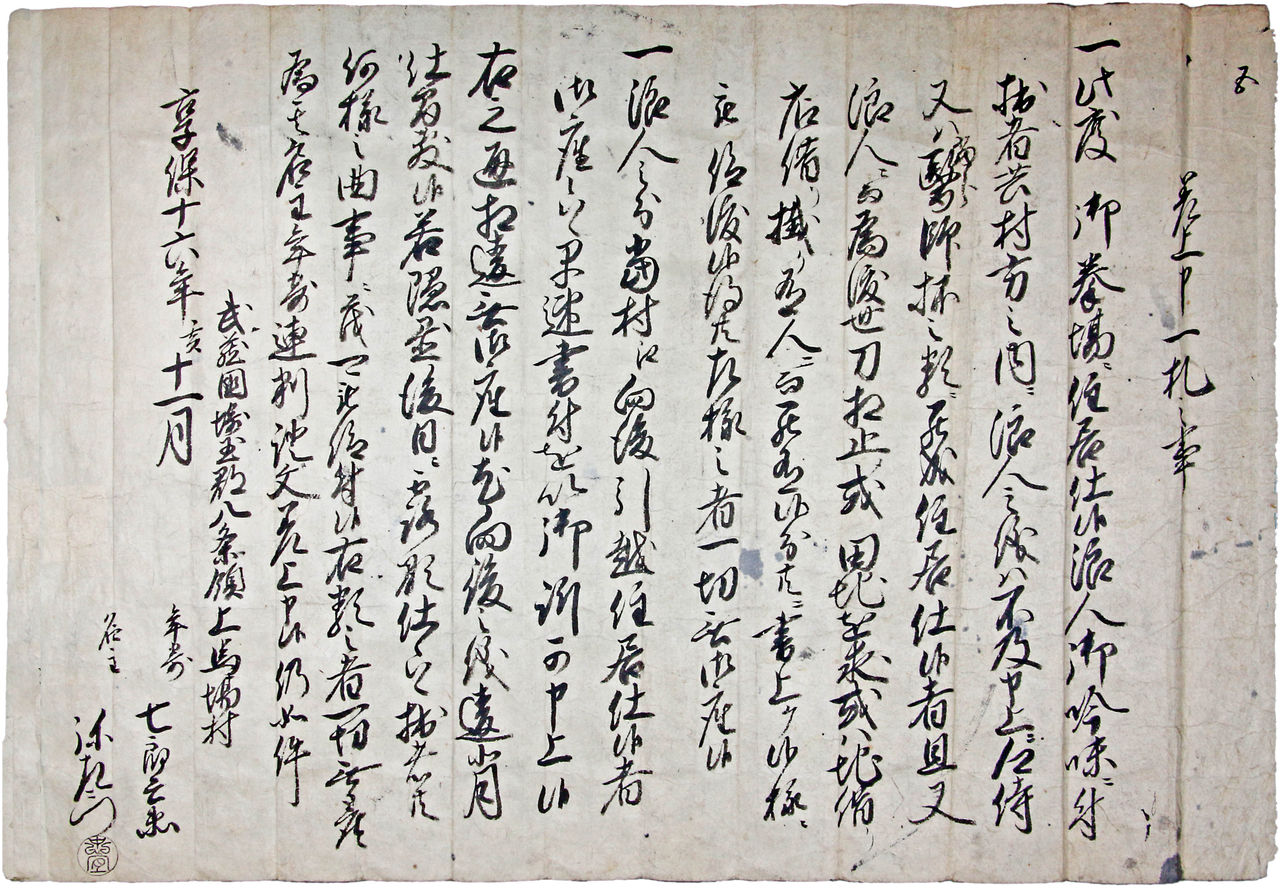 差上申一札之事
一此度御拳場ニ住居仕候浪人御吟味ニ付
拙者共村方之内ニ浪人之儀ハ不及申上ニ侍
又ハ医師抔之類ニ至迄住居仕候者且又
浪人ニ而為渡世刀相止或田地を求或ハ地借り
店借り掛り居人ニ而罷在候分共ニ書上ケ候様ニ
被仰渡候得共左様之者一切無御座候
一浪人之分当村江向後引越住居仕候者
御座候ハヽ早速書付を以御訴可申上候
右之通相違無御座候尤向後之儀違小月
仕候若隠置後日ニ露顕仕候ハヽ拙者共
何様之曲事ニ茂可被仰付候右類之者一切無座
為其名主年寄連判証文差上申候仍如件
享保十六年亥十一月
武蔵国埼玉郡八条領上馬場村
年寄 七郎兵衛
名主 弥左衛門